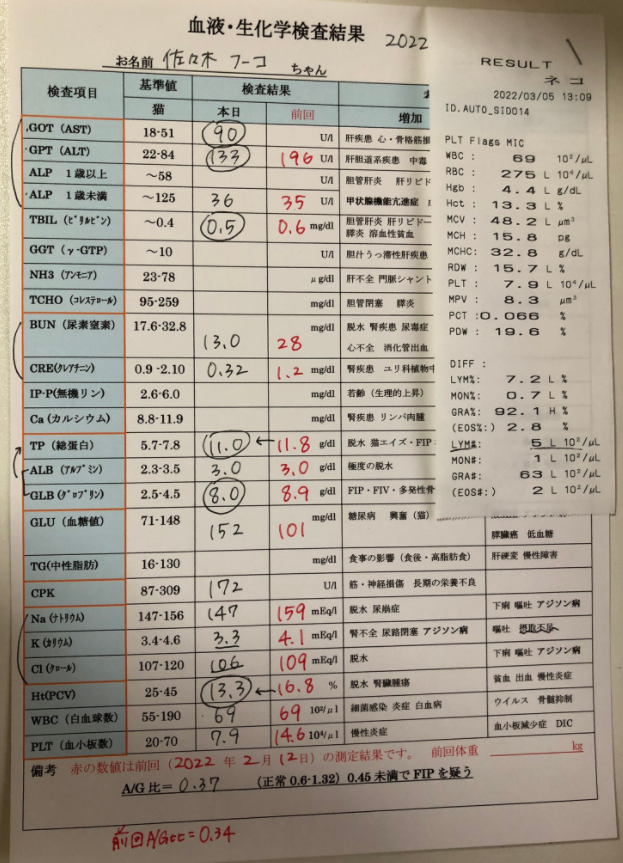 血液・生化学検査結果 2022
お名前 佐々木 フーコ ちゃん
検査項目 基準値 検査結果
猫 本日 前回 増加
GOT (AST) 18-51 90 U/l 肝疾患 心・骨格筋損
GPT (ALT) 22-84 133 196 U/l 肝胆道系疾患 中毒
ALP 1歳以上 ~58 U/l 胆管肝炎 肝リピド
ALP 1歳未満 ~125 36 35 U/l 甲状腺機能亢進症
TBIL (ビリルビン) ~0.4 0.5 0.6 mg/dl 胆管肝炎 肝リピドー
膵炎 溶血性貧血
GGT (γ-GTP) ~10 U/l 胆汁うっ滞性肝疾患
NH3 (アンモニア) 23-78 μg/dl 肝不全 門脈シャント
TCHO (コレステロール) 95-259 mg/dl 胆管閉塞 膵炎
BUN (尿素窒素) 17.6-32.8 13.0 28 mg/dl 脱水 腎疾患 尿毒症
心不全 消化管出血
CRE(クレアチニン) 0.9-2.10 0.32 1.2 mg/dl 腎疾患 ユリ科植物中
IP-P(無機リン) 2.6-6.0 mg/dl 若齢 (生理的上昇)
Ca (カルシウム) 8.8-11.9 mg/dl 腎疾患 リンパ肉腫
TP (総蛋白) 5.7-7.8 11.0 ← 11.8 g/dl 脱水 猫エイズ・FIP
ALB (アルブミン) 2.3-3.5 3.0 3.0 g/dl 極度の脱水
GLB (グロブリン) 2.5-4.5 8.0 8.9 g/dl FIP・FIV・多発性骨
GLU (血糖値) 71-148 152 101 mg/dl 糖尿病 興奮 (猫)
膵臓癌 低血糖
TG(中性脂肪) 16-130 mg/dl 食事の影響 (食後・高脂肪食) 肝硬変 慢性障害
CPK 87-309 172 U/l 筋・神経損傷 長期の栄養不良
Na (ナトリウム) 147-156 147 159 mEq/l 脱水 尿崩症 下痢 嘔吐 アジソン病
K (カリウム) 3.4-4.6 3.3 4.1 mEq/l 腎不全 尿路閉塞 アジソン病 嘔吐 摂取不足
Cl (クロール) 107-120 106 109 mEq/l 脱水 下痢 嘔吐 アジソン病
Ht(PCV) 25-45 13.3 ← 16.8 % 脱水 腎臓腫瘍 貧血 出血 慢性炎症
WBC (白血球数) 55-190 69 69 10²/μl 細菌感染 炎症 白血病 ウイルス 骨髄抑制
PLT (血小板数) 20-70 7.9 14.6 10⁴/μl 慢性炎症 血小板減少症 DIC
備考 赤の数値は前回 (2022 年 2月 12日) の測定結果です。 前回体重 kg
A/G比= 0.37 (正常 0.6-1.32) 0.45 未満でFIPを疑う
前回A/G比=0.34
RESULT
ネコ
2022/03/05 13:09
ID.AUTO_SID014
PLT Flags MIC
WBC: 69 10²/μL
RBC: 275 L 10⁴/μL
Hgb: 4.4 L g/dL
Hct: 13.3 L %
MCV: 48.2 L μm³
MCH: 15.8 pg
MCHC: 32.8 g/dL
RDW: 15.7 L %
PLT: 7.9 L 10⁴/μL
MPV: 8.3 μm³
PCT: 0.066 %
PDW: 19.6 %
DIFF :
LYM%: 7.2 L %
MON%: 0.7 L %
GRA%: 92.1 H %
(EOS%:) 2.8 %
LYM#: 5 L 10²/μL
MON#: 1 L 10²/μL
GRA#: 63 L 10²/μL
(EOS#:) 2 L 10²/μL